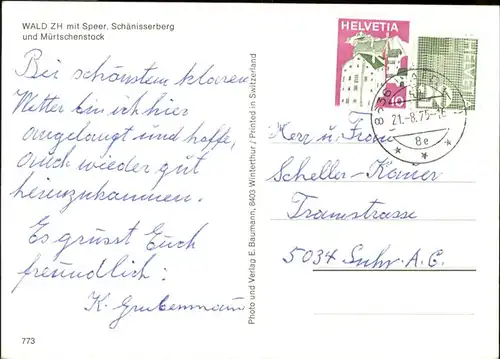 WALD ZH mit Speer, Schänisserberg
und Mürtschenstock
Bei schönstem klaren
Wetter bin ich hier
angelangt und hoffe,
auch wieder gut
heimzukommen.
Es grüsst Euch
freundlich:
K. Grubenmann
773
Photo und Verlag E. Baumann, 8403 Winterthur / Printed in Switzerland
HELVETIA
40
HELVETIA
21.-8.75-
8e
Herr u. Frau
Scheller-Kaner
Tramstrasse
5034 Suhr. A.G.